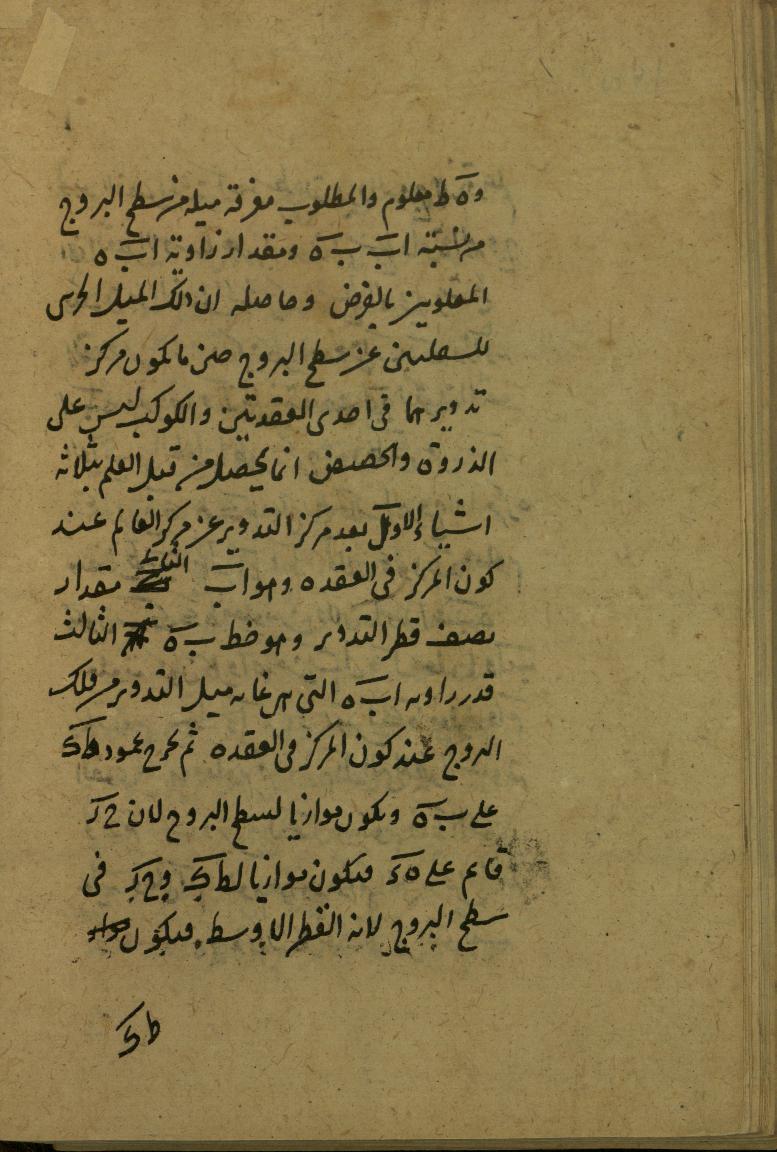 وه ط معلوم والمطلوب معرفة ميله من سطح البروج
من نسبة اب ب ه ومقدار زاوية اب ه
المعلومين بالفرض وحاصله ان ذلك الميل الجزئى
للسفليين عن سطح البروج حين ما يكون مركز
تدويرهما فى احدى العقدتين والكوكب ليس على
الذروة والحضيض انما يحصل من قبل العلم بثلاثة
اشياء الاول بعد مركز التدوير عن مركز العالم عند
كون المركز فى العقده وهو اب الثانى مقدار
نصف قطر التدوير وهو خط ب ه الثالث
قدر زاويه اب ه التى هى غايه ميل التدوير من فلك
البروج عند كون المركز فى العقده ثم نخرج عمود ط ك
على ب ه ويكون موازيا لسطح البروج لان ح د
قائم على ه د فيكون موازيا لط ك و ح د فى
سطح البروج لانه القطر الاوسط فيكون
ط ك